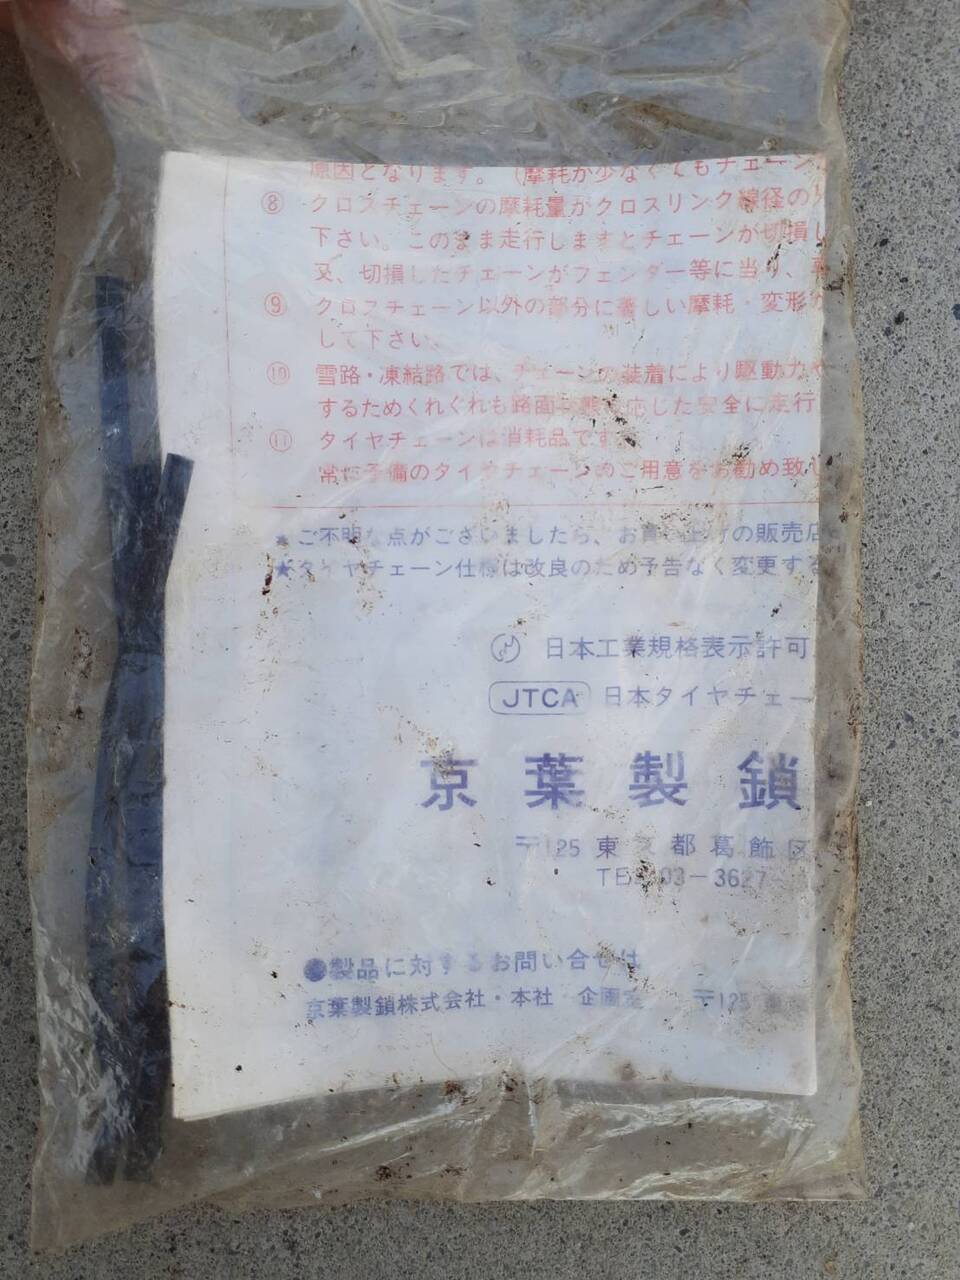 原因となります。（摩耗が少なくてもチェーン
⑧ クロスチェーンの摩耗量がクロスリンク線径の
下さい。このまま走行しますとチェーンが切損し
又、切損したチェーンがフェンダー等に当り、
⑨ クロスチェーン以外の部分に著しい摩耗・変形
して下さい。
⑩ 雪路・凍結路では、チェーンの装着により駆動力や
するためくれぐれも路面状態に応じた安全に走行
⑪ タイヤチェーンは消耗品です。
常に予備のタイヤチェーンのご用意をお勧め致し
★ご不明な点がございましたら、お買い上げの販売店
★タイヤチェーン仕様は改良のため予告なく変更する
日本工業規格表示許可
JTCA 日本タイヤチェー
京葉製鎖
〒125 東京都葛飾区
TEL 03－3627
●製品に対するお問い合せは
京葉製鎖株式会社・本社 企画室 〒125